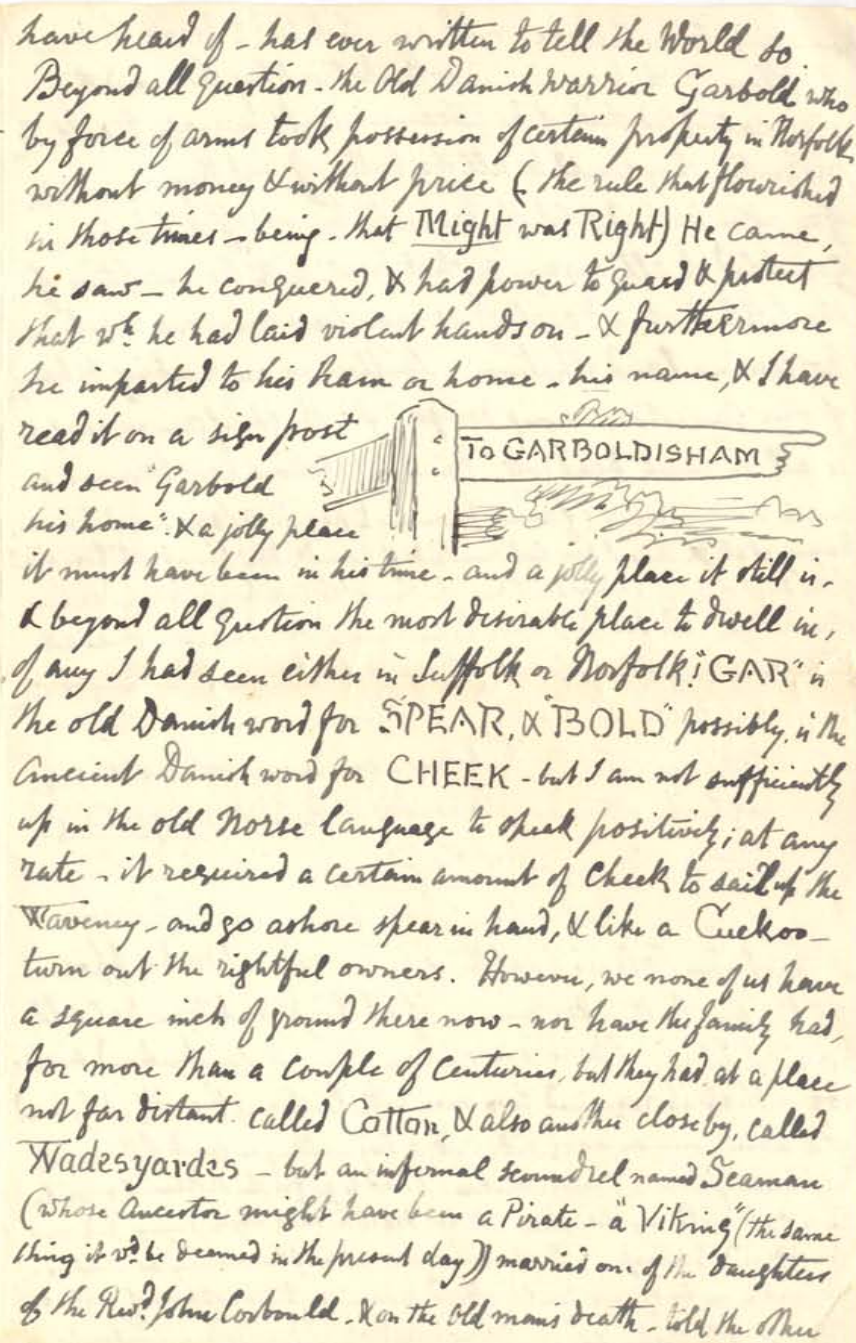 have heard of - has ever written to tell the World so.
Beyond all question - the Old Danish Warrior Garbold who
by force of arms took possession of certain property in Norfolk
without money & without price (the rule that flourished
in those times - being - that Might was Right) He came,
he saw - he conquered, & had power to guard & protect
that wh. he had laid violent hands on - & furthermore
he imparted to his ham or home - his name, & I have
read it on a sign post
To GARBOLDISHAM
and seen "Garbold
his home". & a jolly place
it must have been in his time - and a jolly place it still is -
& beyond all question the most desirable place to dwell in,
of any I had seen either in Suffolk or Norfolk! "GAR" is
the old Danish word for SPEAR, & "BOLD" possibly, is the
ancient Danish word for CHEEK - but I am not sufficiently
up in the old Norse language to speak positively; at any
rate - it required a certain amount of Cheek, to sail up the
Waveney - and go ashore spear in hand, & like a Cuckoo -
turn out the rightful owners. However, we none of us have
a square inch of ground there now - nor have the family had,
for more than a couple of centuries, but they had at a place
not far distant called Cotton, & also another close by, called
Wadesyardes - but an infernal scoundrel named Seaman
(whose Ancestor might have been a Pirate - "a Viking" (the same
thing it wd. be deemed in the present day)) married one of the daughters
of the Revd. John Corbould - & on the old man's death - told the other